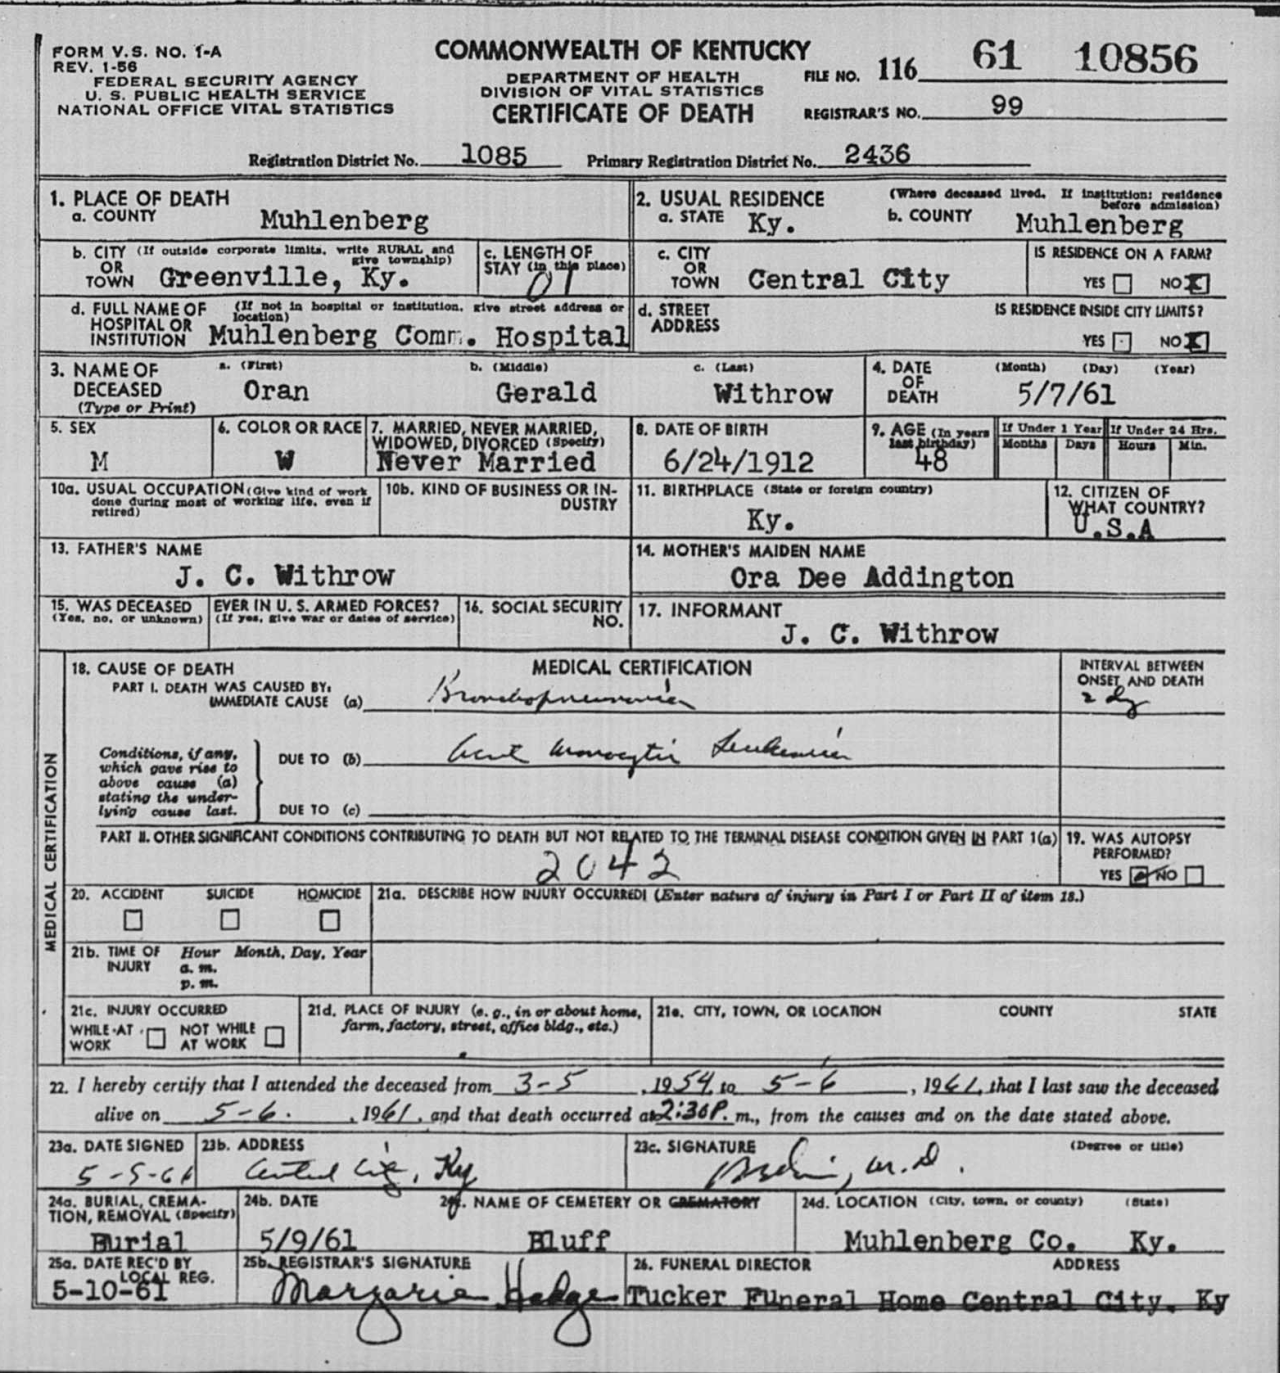 FORM V.S. NO. 1-A
REV. 1-56
FEDERAL SECURITY AGENCY
U. S. PUBLIC HEALTH SERVICE
NATIONAL OFFICE VITAL STATISTICS
COMMONWEALTH OF KENTUCKY
DEPARTMENT OF HEALTH
DIVISION OF VITAL STATISTICS
CERTIFICATE OF DEATH
FILE NO. 116 61 10856
REGISTRAR'S NO. 99
Registration District No. 1085 Primary Registration District No. 2436
1. PLACE OF DEATH
a. COUNTY Muhlenberg
2. USUAL RESIDENCE (Where deceased lived. If institution: residence before admission)
a. STATE Ky. b. COUNTY Muhlenberg
b. CITY (If outside corporate limits, write RURAL and give township)
OR
TOWN Greenville, Ky.
c. LENGTH OF
STAY (in this place)
01
c. CITY
OR
TOWN Central City
IS RESIDENCE ON A FARM?
YES NO X
d. FULL NAME OF (If not in hospital or institution, give street address or location)
HOSPITAL OR
INSTITUTION Muhlenberg Comm. Hospital
d. STREET
ADDRESS
IS RESIDENCE INSIDE CITY LIMITS?
YES NO X
3. NAME OF
DECEASED
(Type or Print)
a. (First) b. (Middle) c. (Last)
Oran Gerald Withrow
4. DATE
OF
DEATH
(Month) (Day) (Year)
5/7/61
5. SEX
M
6. COLOR OR RACE
W
7. MARRIED, NEVER MARRIED,
WIDOWED, DIVORCED (Specify)
Never Married
8. DATE OF BIRTH
6/24/1912
9. AGE (In years
last birthday)
48
If Under 1 Year
Months Days
If Under 24 Hrs.
Hours Min.
10a. USUAL OCCUPATION (Give kind of work
done during most of working life, even if
retired)
10b. KIND OF BUSINESS OR IN-
DUSTRY
11. BIRTHPLACE (State or foreign country)
Ky.
12. CITIZEN OF
WHAT COUNTRY?
U.S.A
13. FATHER'S NAME
J. C. Withrow
14. MOTHER'S MAIDEN NAME
Ora Dee Addington
15. WAS DECEASED EVER IN U. S. ARMED FORCES?
(Yes, no, or unknown) (If yes, give war or dates of service)
16. SOCIAL SECURITY
NO.
17. INFORMANT
J. C. Withrow
MEDICAL CERTIFICATION
18. CAUSE OF DEATH
MEDICAL CERTIFICATION
INTERVAL BETWEEN
ONSET AND DEATH
PART I. DEATH WAS CAUSED BY:
IMMEDIATE CAUSE (a) Bronchopneumonia 2 dy
Conditions, if any,
which gave rise to
above cause (a)
stating the under-
lying cause last.
DUE TO (b) Acut Monocytic Leukemia
DUE TO (c)
PART II. OTHER SIGNIFICANT CONDITIONS CONTRIBUTING TO DEATH BUT NOT RELATED TO THE TERMINAL DISEASE CONDITION GIVEN IN PART 1(a)
2042
19. WAS AUTOPSY
PERFORMED?
YES NO
20. ACCIDENT SUICIDE HOMICIDE
21a. DESCRIBE HOW INJURY OCCURRED! (Enter nature of injury in Part I or Part II of item 18.)
21b. TIME OF
INJURY
Hour Month, Day, Year
a. m.
p. m.
21c. INJURY OCCURRED
WHILE AT
WORK
NOT WHILE
AT WORK
21d. PLACE OF INJURY (e. g., in or about home,
farm, factory, street, office bldg., etc.)
21e. CITY, TOWN, OR LOCATION COUNTY STATE
22. I hereby certify that I attended the deceased from 3-5, 1954, to 5-6, 1961, that I last saw the deceased
alive on 5-6., 1961, and that death occurred at 2:30P. m., from the causes and on the date stated above.
23a. DATE SIGNED
23b. ADDRESS
Central City, Ky
23c. SIGNATURE (Degree or title)
M.D.
24a. BURIAL, CREMA-
TION, REMOVAL (Specify)
Burial
24b. DATE
5/9/61
24c. NAME OF CEMETERY OR CREMATORY
Bluff
24d. LOCATION (City, town, or county) (State)
Muhlenberg Co. Ky.
25a. DATE REC'D BY
LOCAL REG.
5-10-61
25b. REGISTRAR'S SIGNATURE
Margarie Hodge
26. FUNERAL DIRECTOR ADDRESS
Tucker Funeral Home Central City, Ky